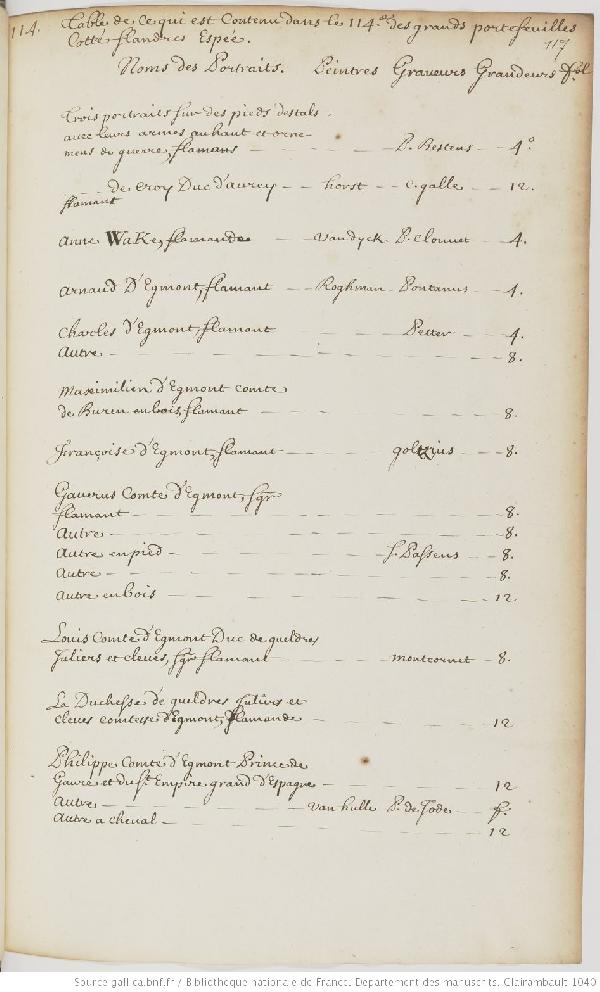 114. Table de Ce qui est Contenu dans le 114.e des grands portefeuilles
Cotté flandres Espée.
117
Noms des Portraits. Peintres Graveurs Grandeurs fol
Trois portraits sur des pieds destals.
avec leurs armes au haut et orne-
mens de guerre, flamans P. Restens 4.o
de Croy Duc d'aurey horst C. galle 12.
flamant
Anne Wake, flamande Vandyck P. Clouuet 4.
Arnaud D'Egmont, flamant Roghman Pontanus 4.
Charles d'Egmont, flamant Petter 4.
Autre 8.
Maximilien d'Egmont comte
de Buren en bois, flamant 8.
Françoise d'Egmont, flamant goltzius 8.
Gaverus Comte d'Egmont, sgr
flamant 8.
Autre 8.
Autre en pied J. Passeus 8.
Autre 8.
Autre en bois 12.
Louis Comte d'Egmont Duc de gueldres
Juliers et cleues, sgr flamant montcornet 8.
La Duchesse de gueldres Juliers et
cleues comtesse d'Egmont, flamande 12
Philippe Comte d'Egmont Prince de
Gavre et du St Empire. grand d'Espagne 12
Autre Van hulle P. de Jode f.
Autre a cheval 12
Source gallica.bnf.fr / Bibliothèque nationale de France. Département des manuscrits. Clairambault 1040